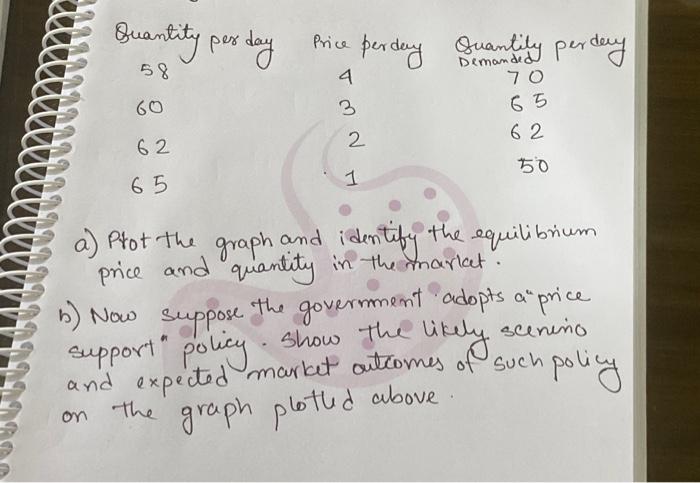 Quantity per day Price per day Quantity per day
Demanded
58 4 70
60 3 65
62 2 62
65 1 50
a) Plot the graph and identify the equilibrium
price and quantity in the market.
b) Now suppose the government adopts a "price
support" policy. Show the likely scenerio
and expected market outcomes of such policy
on the graph plotted above.